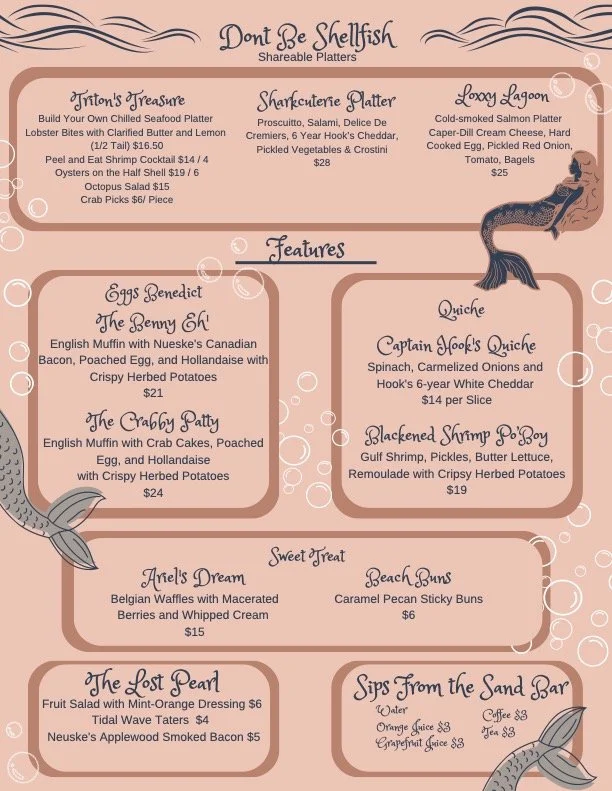 Dont Be Shellfish
Shareable Platters
Triton's Treasure
Build Your Own Chilled Seafood Platter
Lobster Bites with Clarified Butter and Lemon
(1/2 Tail) $16.50
Peel and Eat Shrimp Cocktail $14 / 4
Oysters on the Half Shell $19 / 6
Octopus Salad $15
Crab Picks $6/ Piece
Sharkcuterie Platter
Proscuitto, Salami, Delice De
Cremiers, 6 Year Hook's Cheddar,
Pickled Vegetables & Crostini
$28
Loxxy Lagoon
Cold-smoked Salmon Platter
Caper-Dill Cream Cheese, Hard
Cooked Egg, Pickled Red Onion,
Tomato, Bagels
$25
Features
Eggs Benedict
The Benny Eh'
English Muffin with Nueske's Canadian
Bacon, Poached Egg, and Hollandaise with
Crispy Herbed Potatoes
$21
The Crabby Patty
English Muffin with Crab Cakes, Poached
Egg, and Hollandaise
with Crispy Herbed Potatoes
$24
Quiche
Captain Hook's Quiche
Spinach, Carmelized Onions and
Hook's 6-year White Cheddar
$14 per Slice
Blackened Shrimp Po'Boy
Gulf Shrimp, Pickles, Butter Lettuce,
Remoulade with Cripsy Herbed Potatoes
$19
Sweet Treat
Ariel's Dream
Belgian Waffles with Macerated
Berries and Whipped Cream
$15
Beach Buns
Caramel Pecan Sticky Buns
$6
The Lost Pearl
Fruit Salad with Mint-Orange Dressing $6
Tidal Wave Taters $4
Neuske's Applewood Smoked Bacon $5
Sips From the Sand Bar
Water
Orange Juice $3
Grapefruit Juice $3
Coffee $3
Tea $3